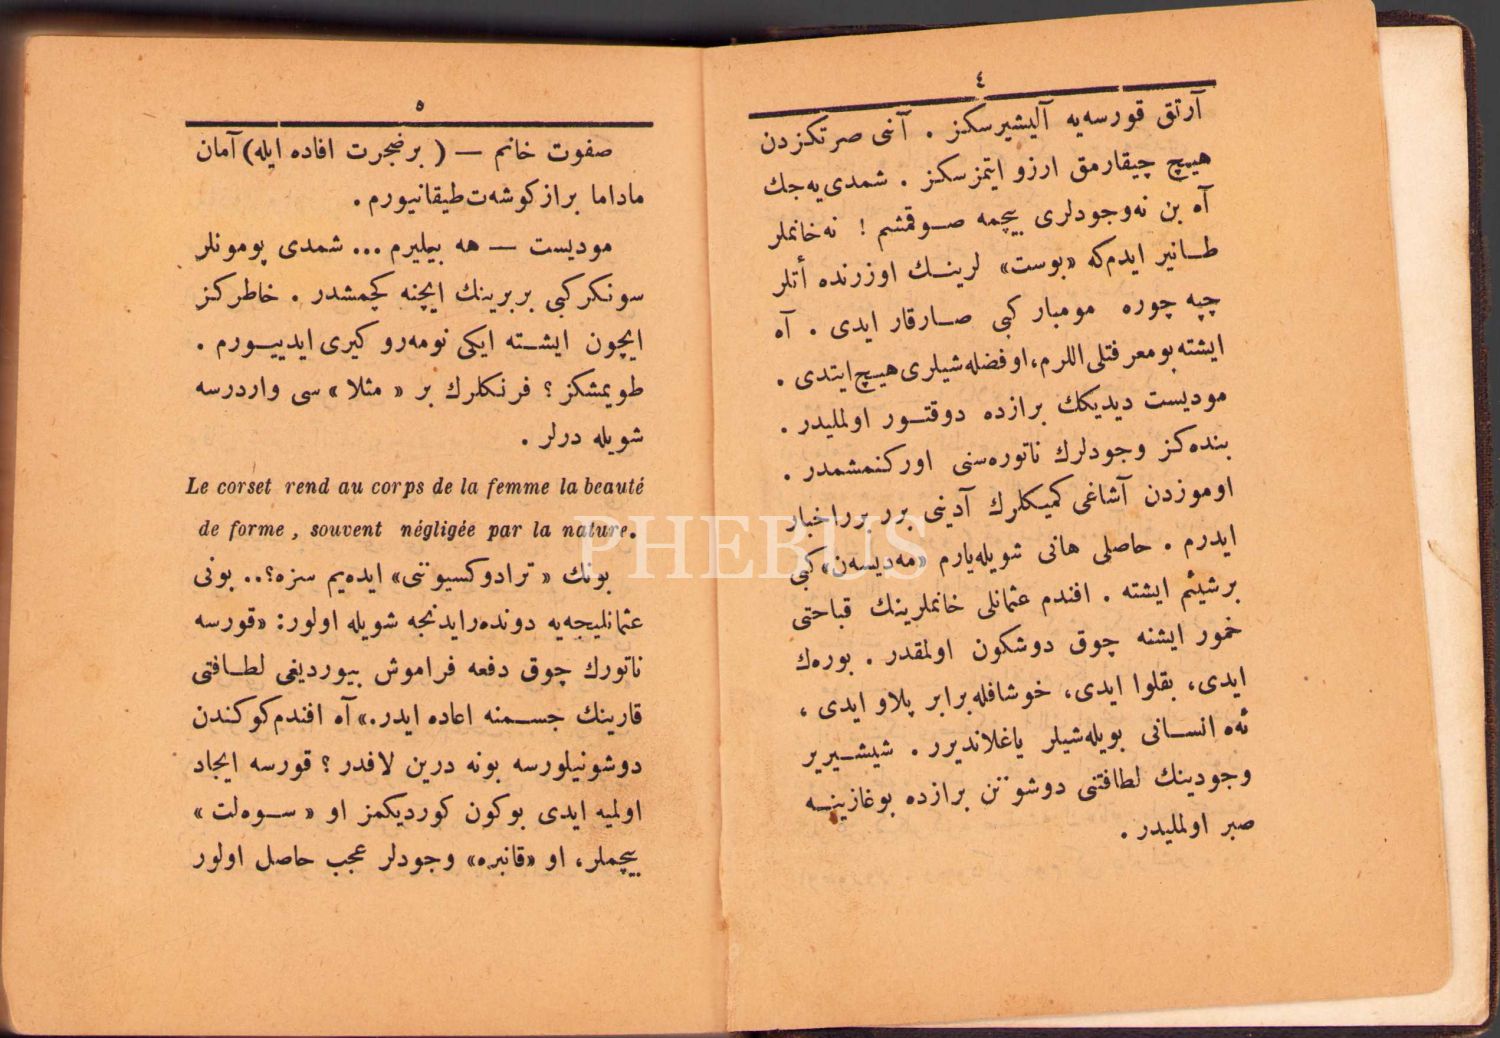 ٤
آرتق قورسه‌یه آلیشیرسكز . آنی صرتكزدن
هیچ چیقارمق ارزو ایتمزسكز . شمدی‌یه‌جك
آه بن نه‌وجودلری بیچمه صوقمشم ! نه‌خانملر
طانیر ایدم‌كه «بوست» لرینك اوزرنده أتلر
چپه چوره مومبار كبی صارقار ایدی . آه
ایشته‌بومعرفتلی‌اللرم، اوفضله‌شیلری‌هیچ‌ایتدی .
مودیست دیدیكك برازده دوقتور اولملیدر .
بنده‌كز وجودلرك ناتوره‌سنی اوركنمشمدر .
اوموزدن آشاغی كمیكلرك آدینی برر برراخبار
ایدرم . حاصلی هانی شویله‌یارم «مه‌دیسه‌ن» كبی
برشیئم ایشته . افندم عثمانلی خانملرینك قباحتی
خمور ایشنه چوق دوشكون اولمقدر . بوره‌ك
ایدی، بقلوا ایدی، خوشافله‌برابر پلاو ایدی ،
ئه‌ه انسانی بویله‌شیلر یاغلاندیرر . شیشیریر
وجودینك لطافتنی دوشونن برازده بوغازینه
صبر اولملیدر .
٥
صفوت خانم — ( بر ضجرت افاده ایله) آمان
ماداما برازكوشه‌ت طیقانیورم .
مودیست — هه بیلیرم ... شمدی پومونلر
سونكركبی بربرینك ایچنه كچمشدر . خاطركز
ایچون ایشته ایكی نومه‌رو كیری ایدییورم .
طویمشكز ؟ فرنكلرك بر « مثلا » سی واردرسه
شویله درلر .
Le corset rend au corps de la femme la beauté
de forme , souvent négligée par la nature.
PHEBUS
بونك « ترادوكسیوننی» ایده‌یم سزه؟.. بونی
عثمانلیجه‌یه دونده‌رایدنجه شویله اولور: «قورسه
ناتورك چوق دفعه فراموش بیوردیغی لطافتی
قارینك جسمنه اعاده ایدر.» آه افندم‌كوكندن
دوشونیلورسه بونه درین لافدر ؟ قورسه ایجاد
اولمیه ایدی بوكون كوردیكمز او « سوه‌لت »
بیچملر، او «قانبره» وجودلر عجب حاصل اولور